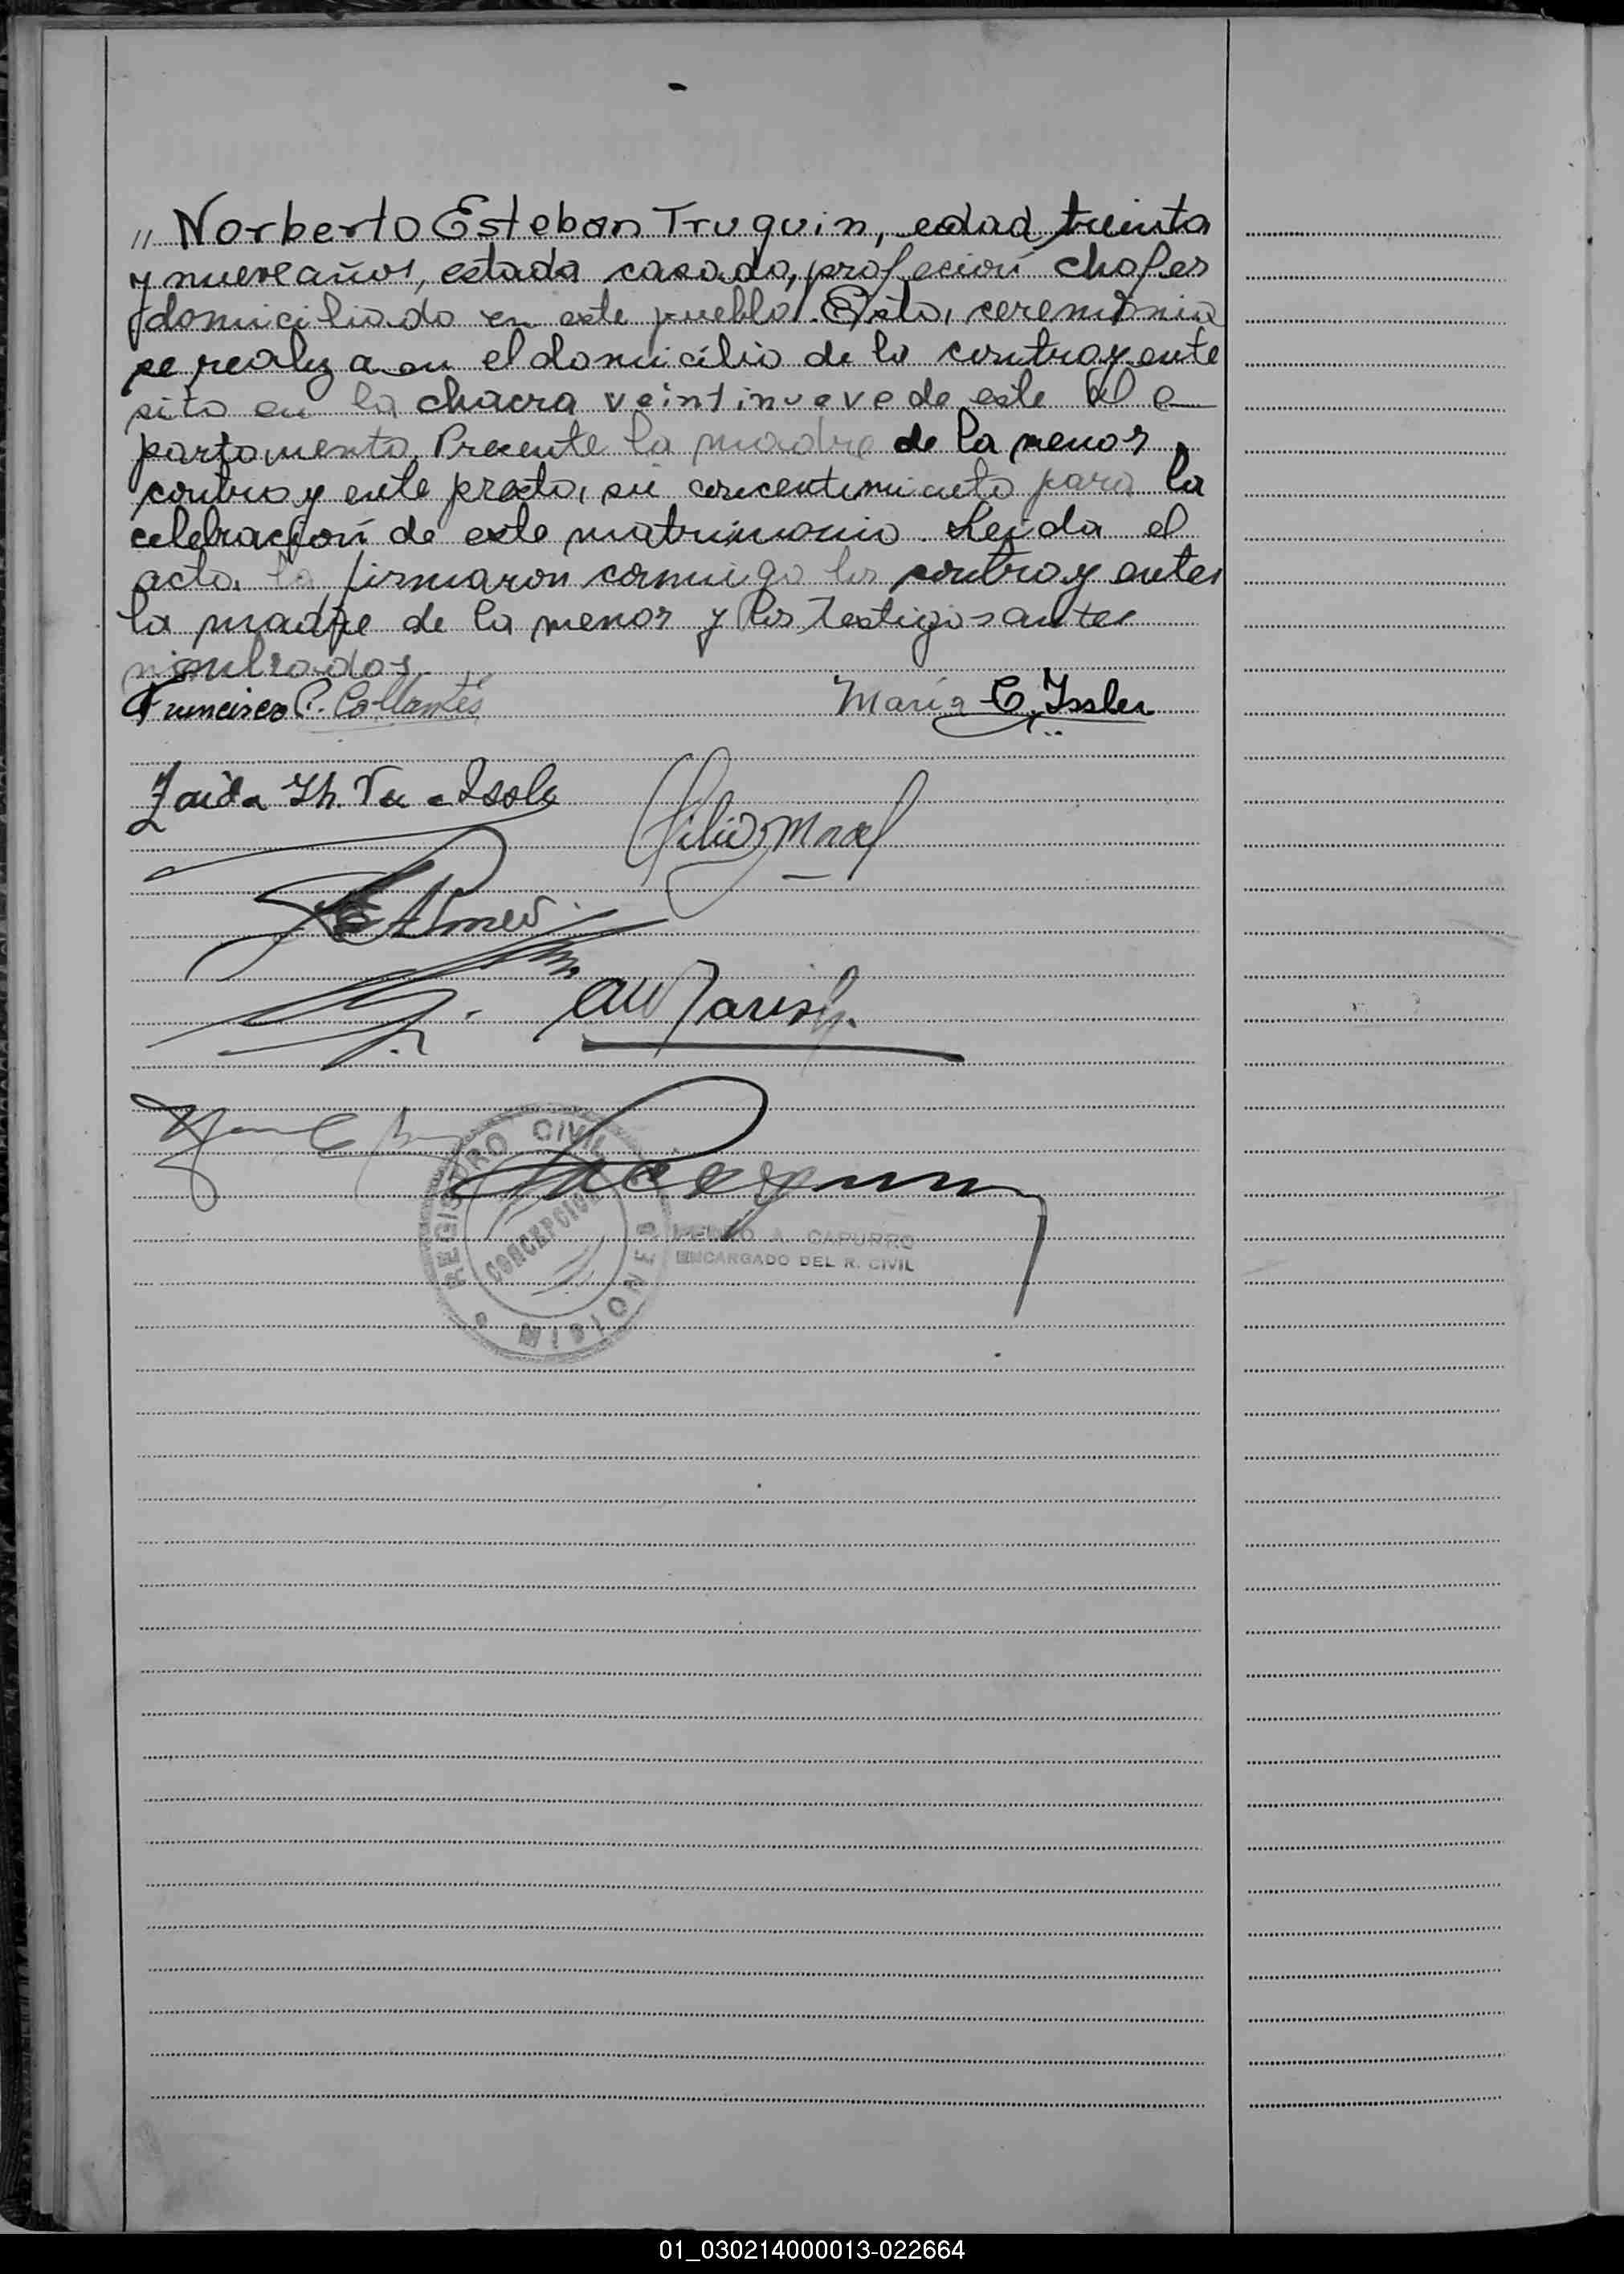 " Norberto Esteban Truquin, edad treinta
y nueve años, estado casado, profecion chofer
domiciliado en este pueblo. Esta, ceremonia
se realiza en el domicilio de la contrayente
sito en la chacra veintinueve de este De
partamento. Precente la madre de la menor
contrayente presta, su concentimiento para la
celebración de este matrimonio. Leida el
acta, la firmaron conmigo los contrayentes
la madre de la menor y los testigos antes
nombrados.
Francisco P. Collantes María C. Issler
Zaida Th. V. de Issler
REGISTRO CIVIL
CONCEPCION
MISIONES
PEDRO A. CAPURRO
ENCARGADO DEL R. CIVIL
01_030214000013-022664